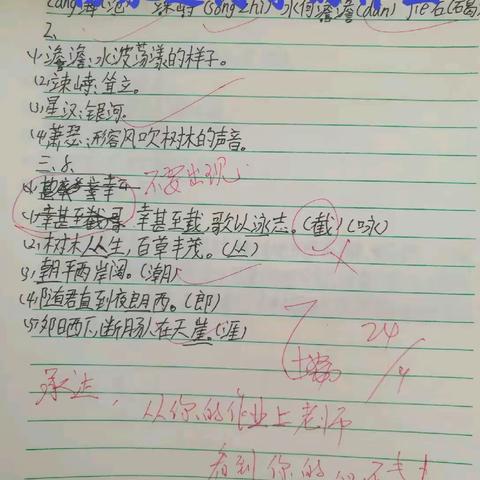 cang海沱 竦峙(sǒng zhì) 水何澹澹(dàn) jié石(碣)
2、
(1)澹澹:水波荡漾的样子。
(2)竦峙:耸立。
(3)星汉:银河。
(4)萧瑟:形容风吹树木的声音。
三、8、
不要出现
(1)幸甚至截,歌以泳志。(截)(咏)
(2)树木从生,百草丰茂。(丛)
(3)朝平两岸阔。(潮)
(4)随君直到夜朗西。(郎)
(5)夕日西下,断肠人在天崖。(涯)
24/9
从你的作业上老师
看到你的